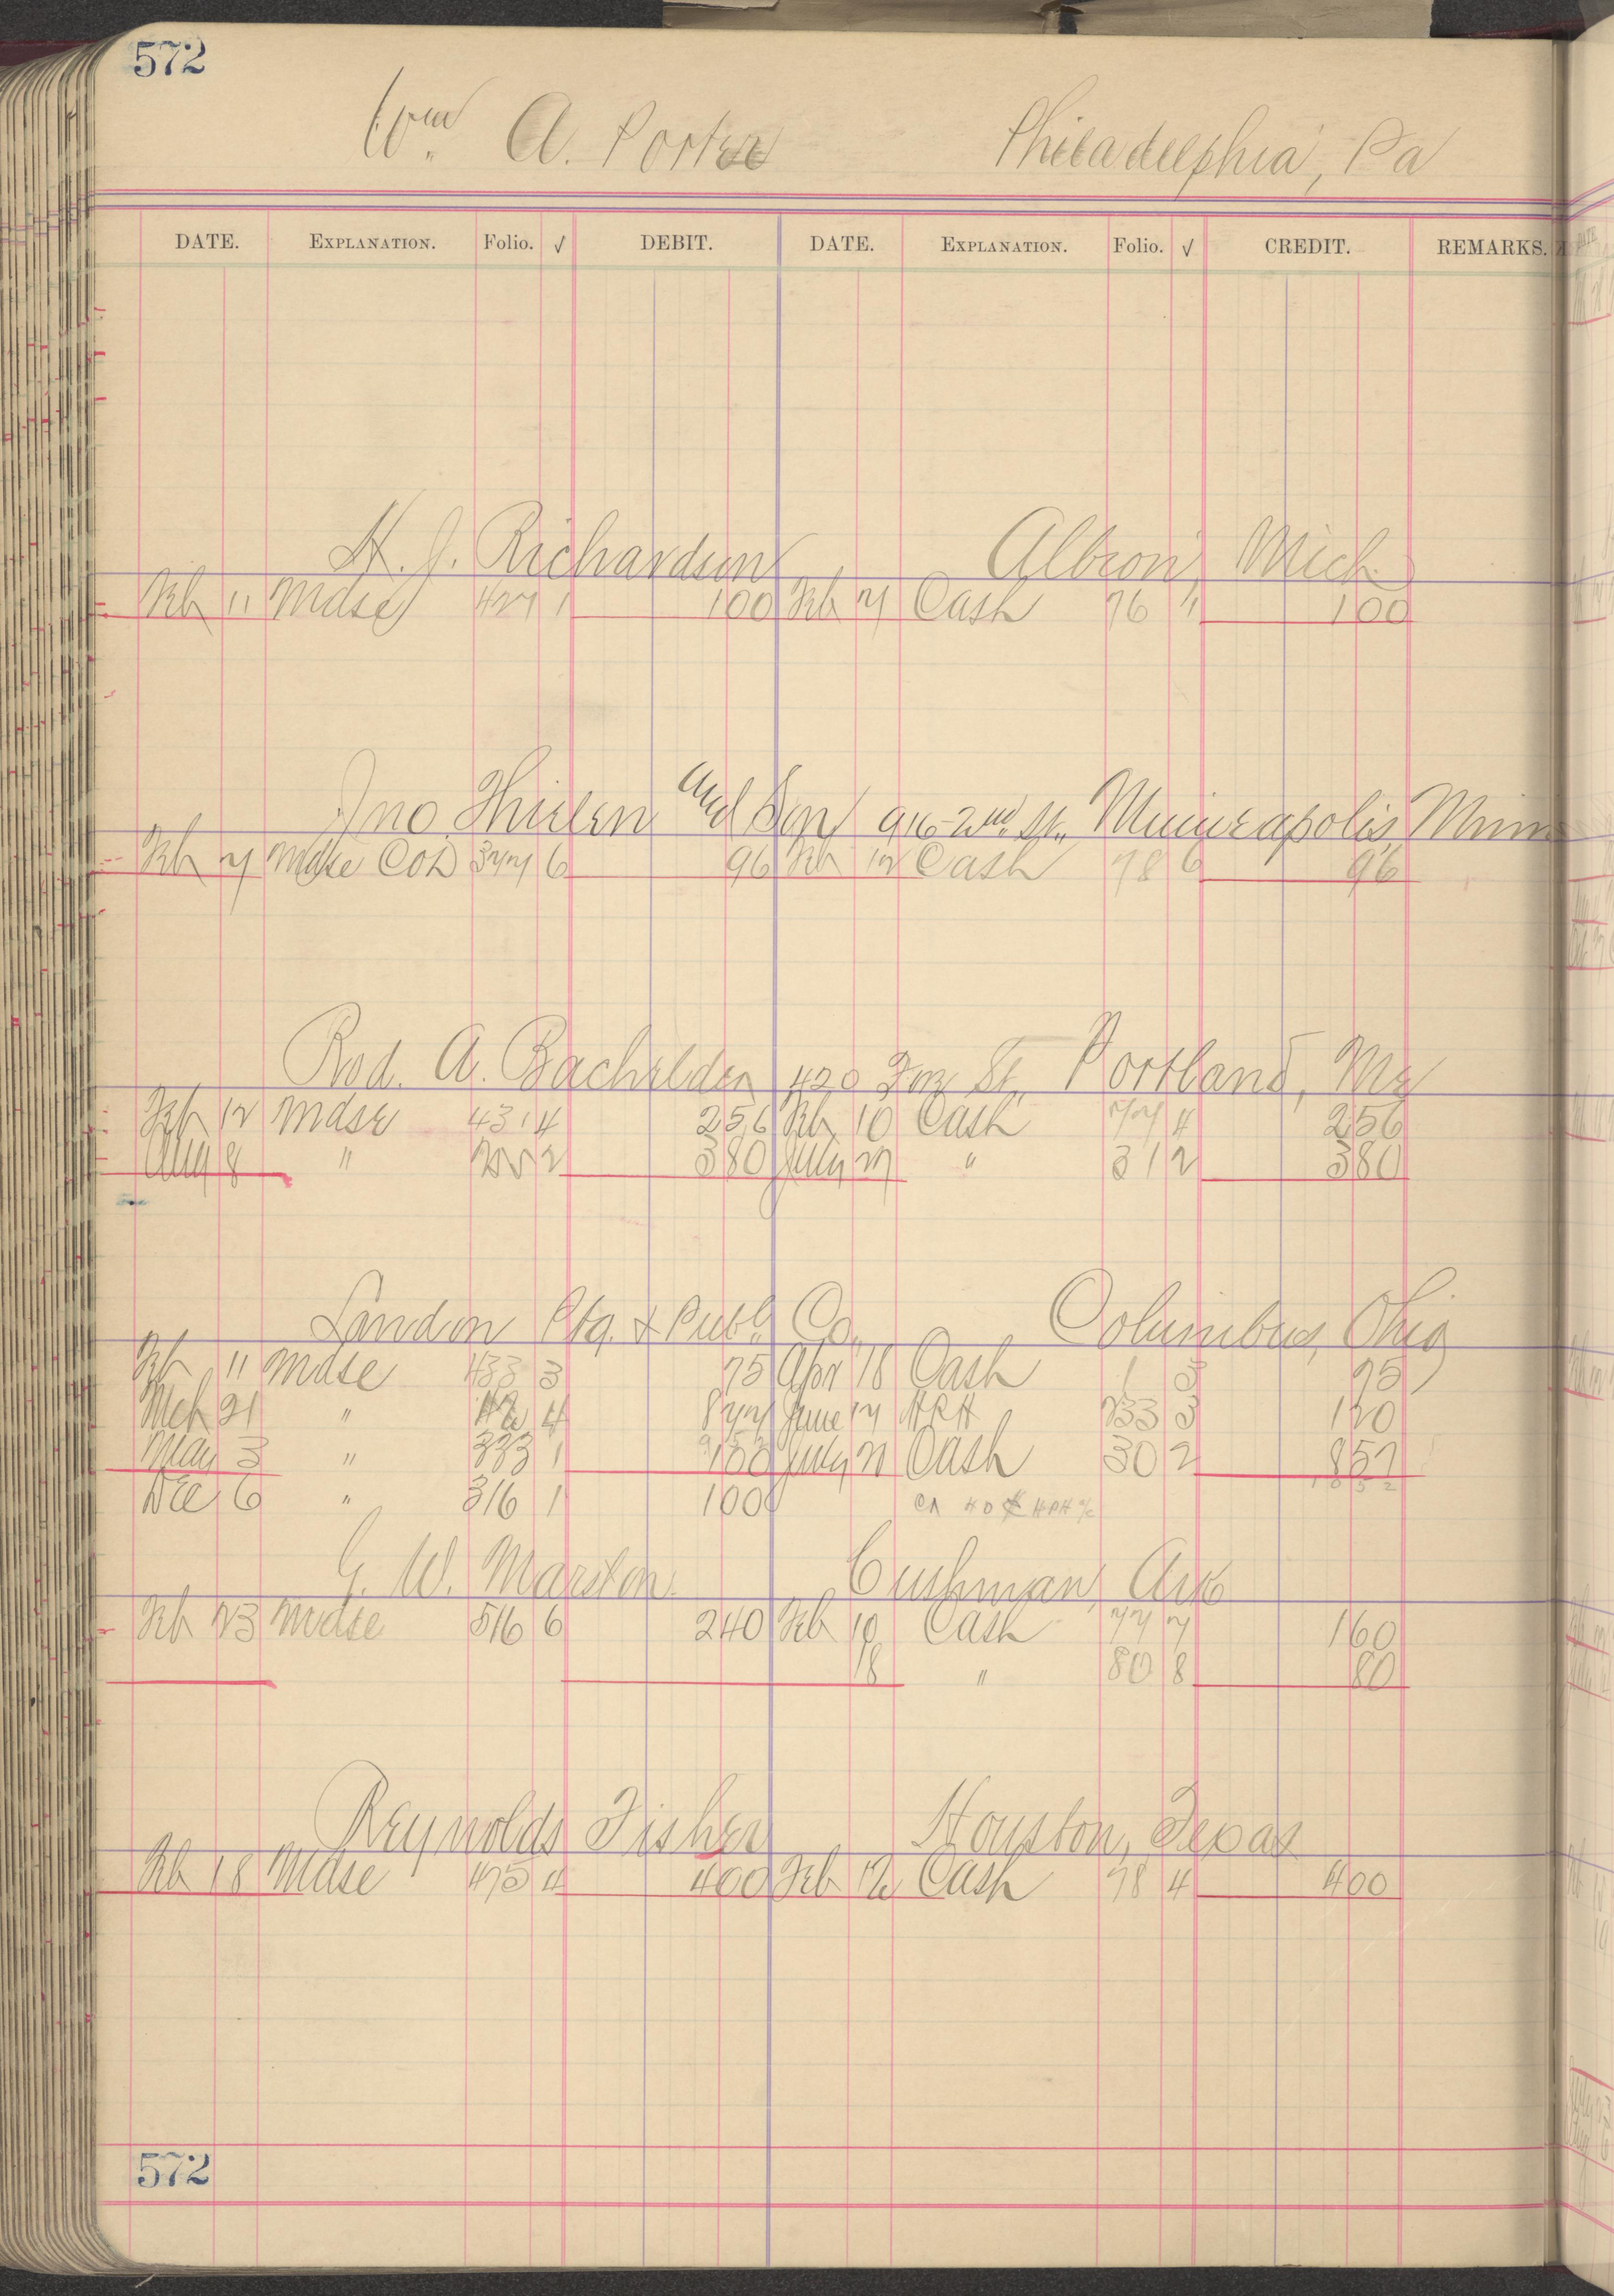 572
Wm. A. Porter Philadelphia, Pa
DATE. EXPLANATION. Folio. √ DEBIT. DATE. EXPLANATION. Folio. √ CREDIT. REMARKS.
H. J. Richardson Albion, Mich
Feb 11 Mdse 427 1 100 Feb 7 Cash 76 11 100
Jno Thielen and Son 916-2nd St., Minneapolis, Minn
Feb 7 Mdse COD 377 6 96 Feb 12 Cash 78 6 96
Rod. A. Bachelder 420 Fore St., Portland, Me
Feb 12 Mdse 431 4 256 Feb 10 Cash 77 4 256
Aug 8 " 2 380 July 27 " 31 2 380
Landon Ptg. & Publ. Co. Columbus, Ohio
Feb 11 Mdse 433 3 75 Apr 18 Cash 1 3 75
Mch 21 " 4 877 June 17 HRH 233 3 120
May 3 " 333 1 100 July 21 Cash 30 2 857
Dec 6 " 316 1 100
G. W. Marston Cushman, Ark
Feb 23 Mdse 516 6 240 Feb 10 Cash 77 7 160
18 " 80 8 80
Reynolds Fisher Houston, Texas
Feb 18 Mdse 475 4 400 Feb 12 Cash 78 4 400
572